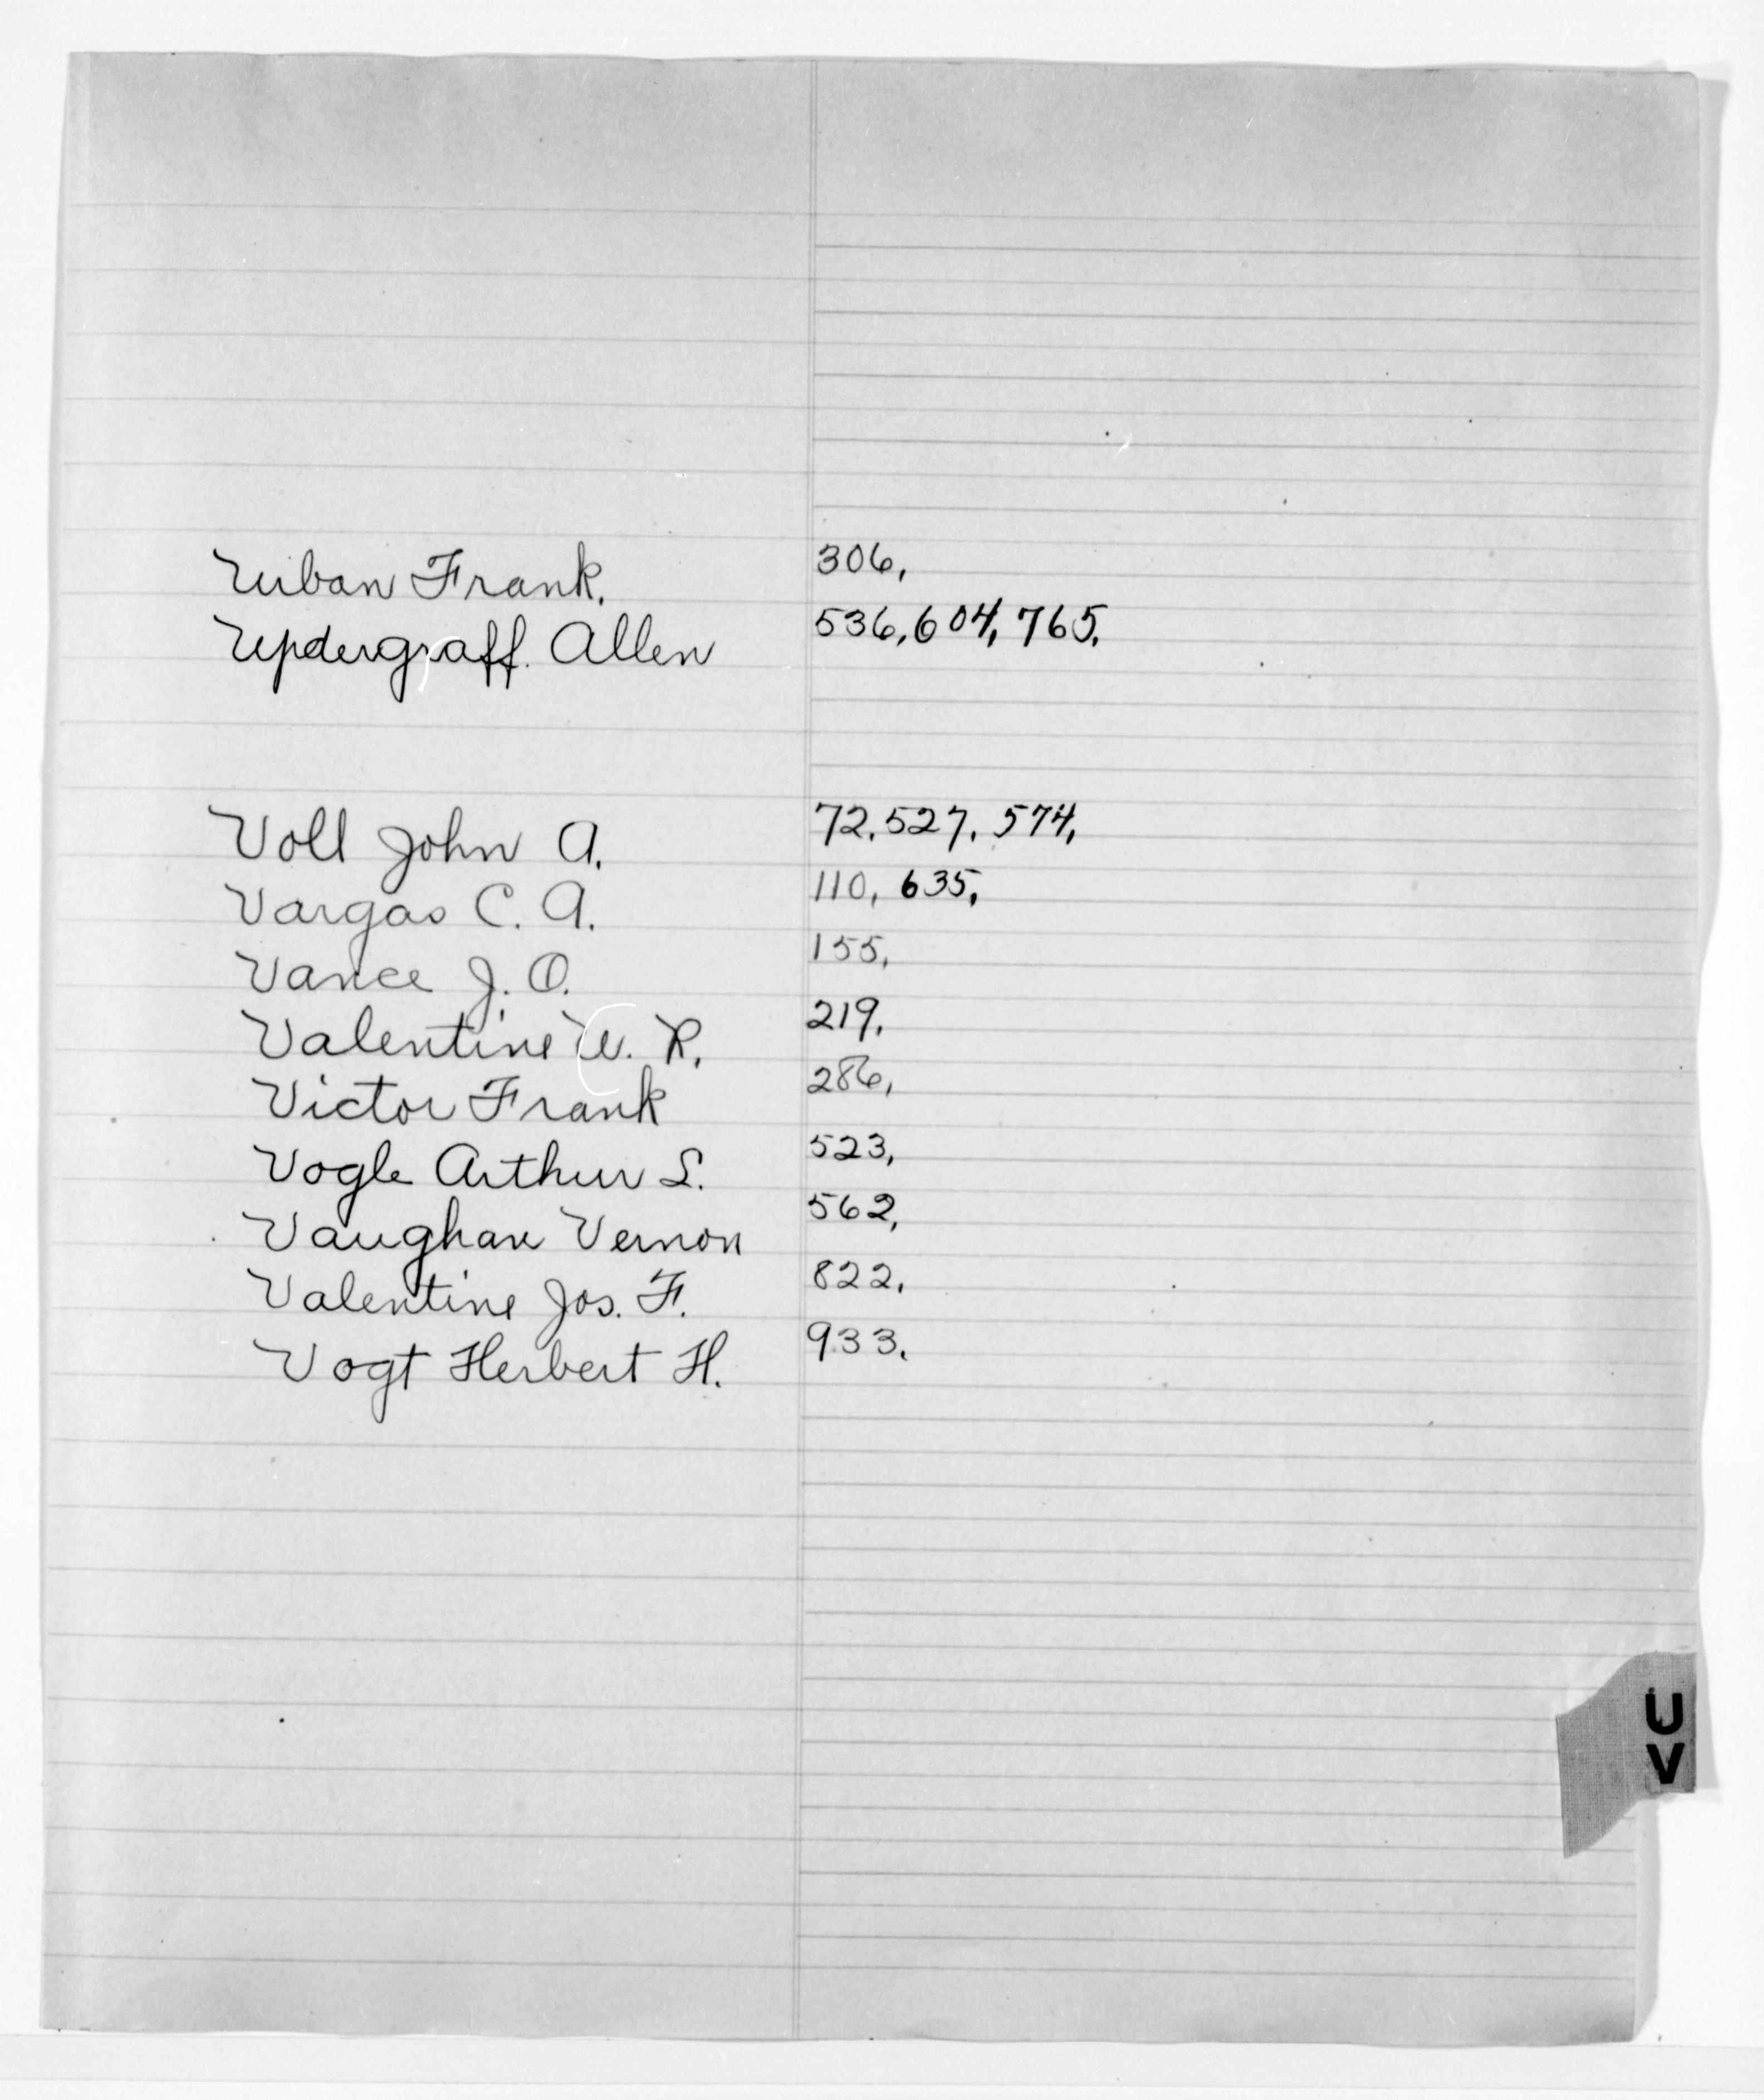 Urban Frank. 306,
Updergraff. Allen 536, 604, 765.
Voll John A. 72, 527, 574,
Vargas C. A. 110, 635,
Vance J. O. 155,
Valentine W. R. 219,
Victor Frank 286,
Vogle Arthur L. 523,
Vaughan Vernon 562,
Valentine Jos. F. 822,
Vogt Herbert H. 933,
U
V